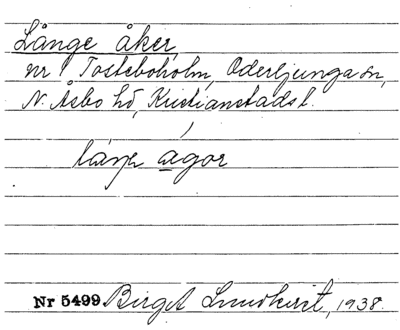 Långe åker,
nr 1 Tosteboholm, Oderljunga sn,
N. Åsbo hd, Kristianstads l.
lánɟə agər
Nr 5499 Birgit Lundkvist, 1938.